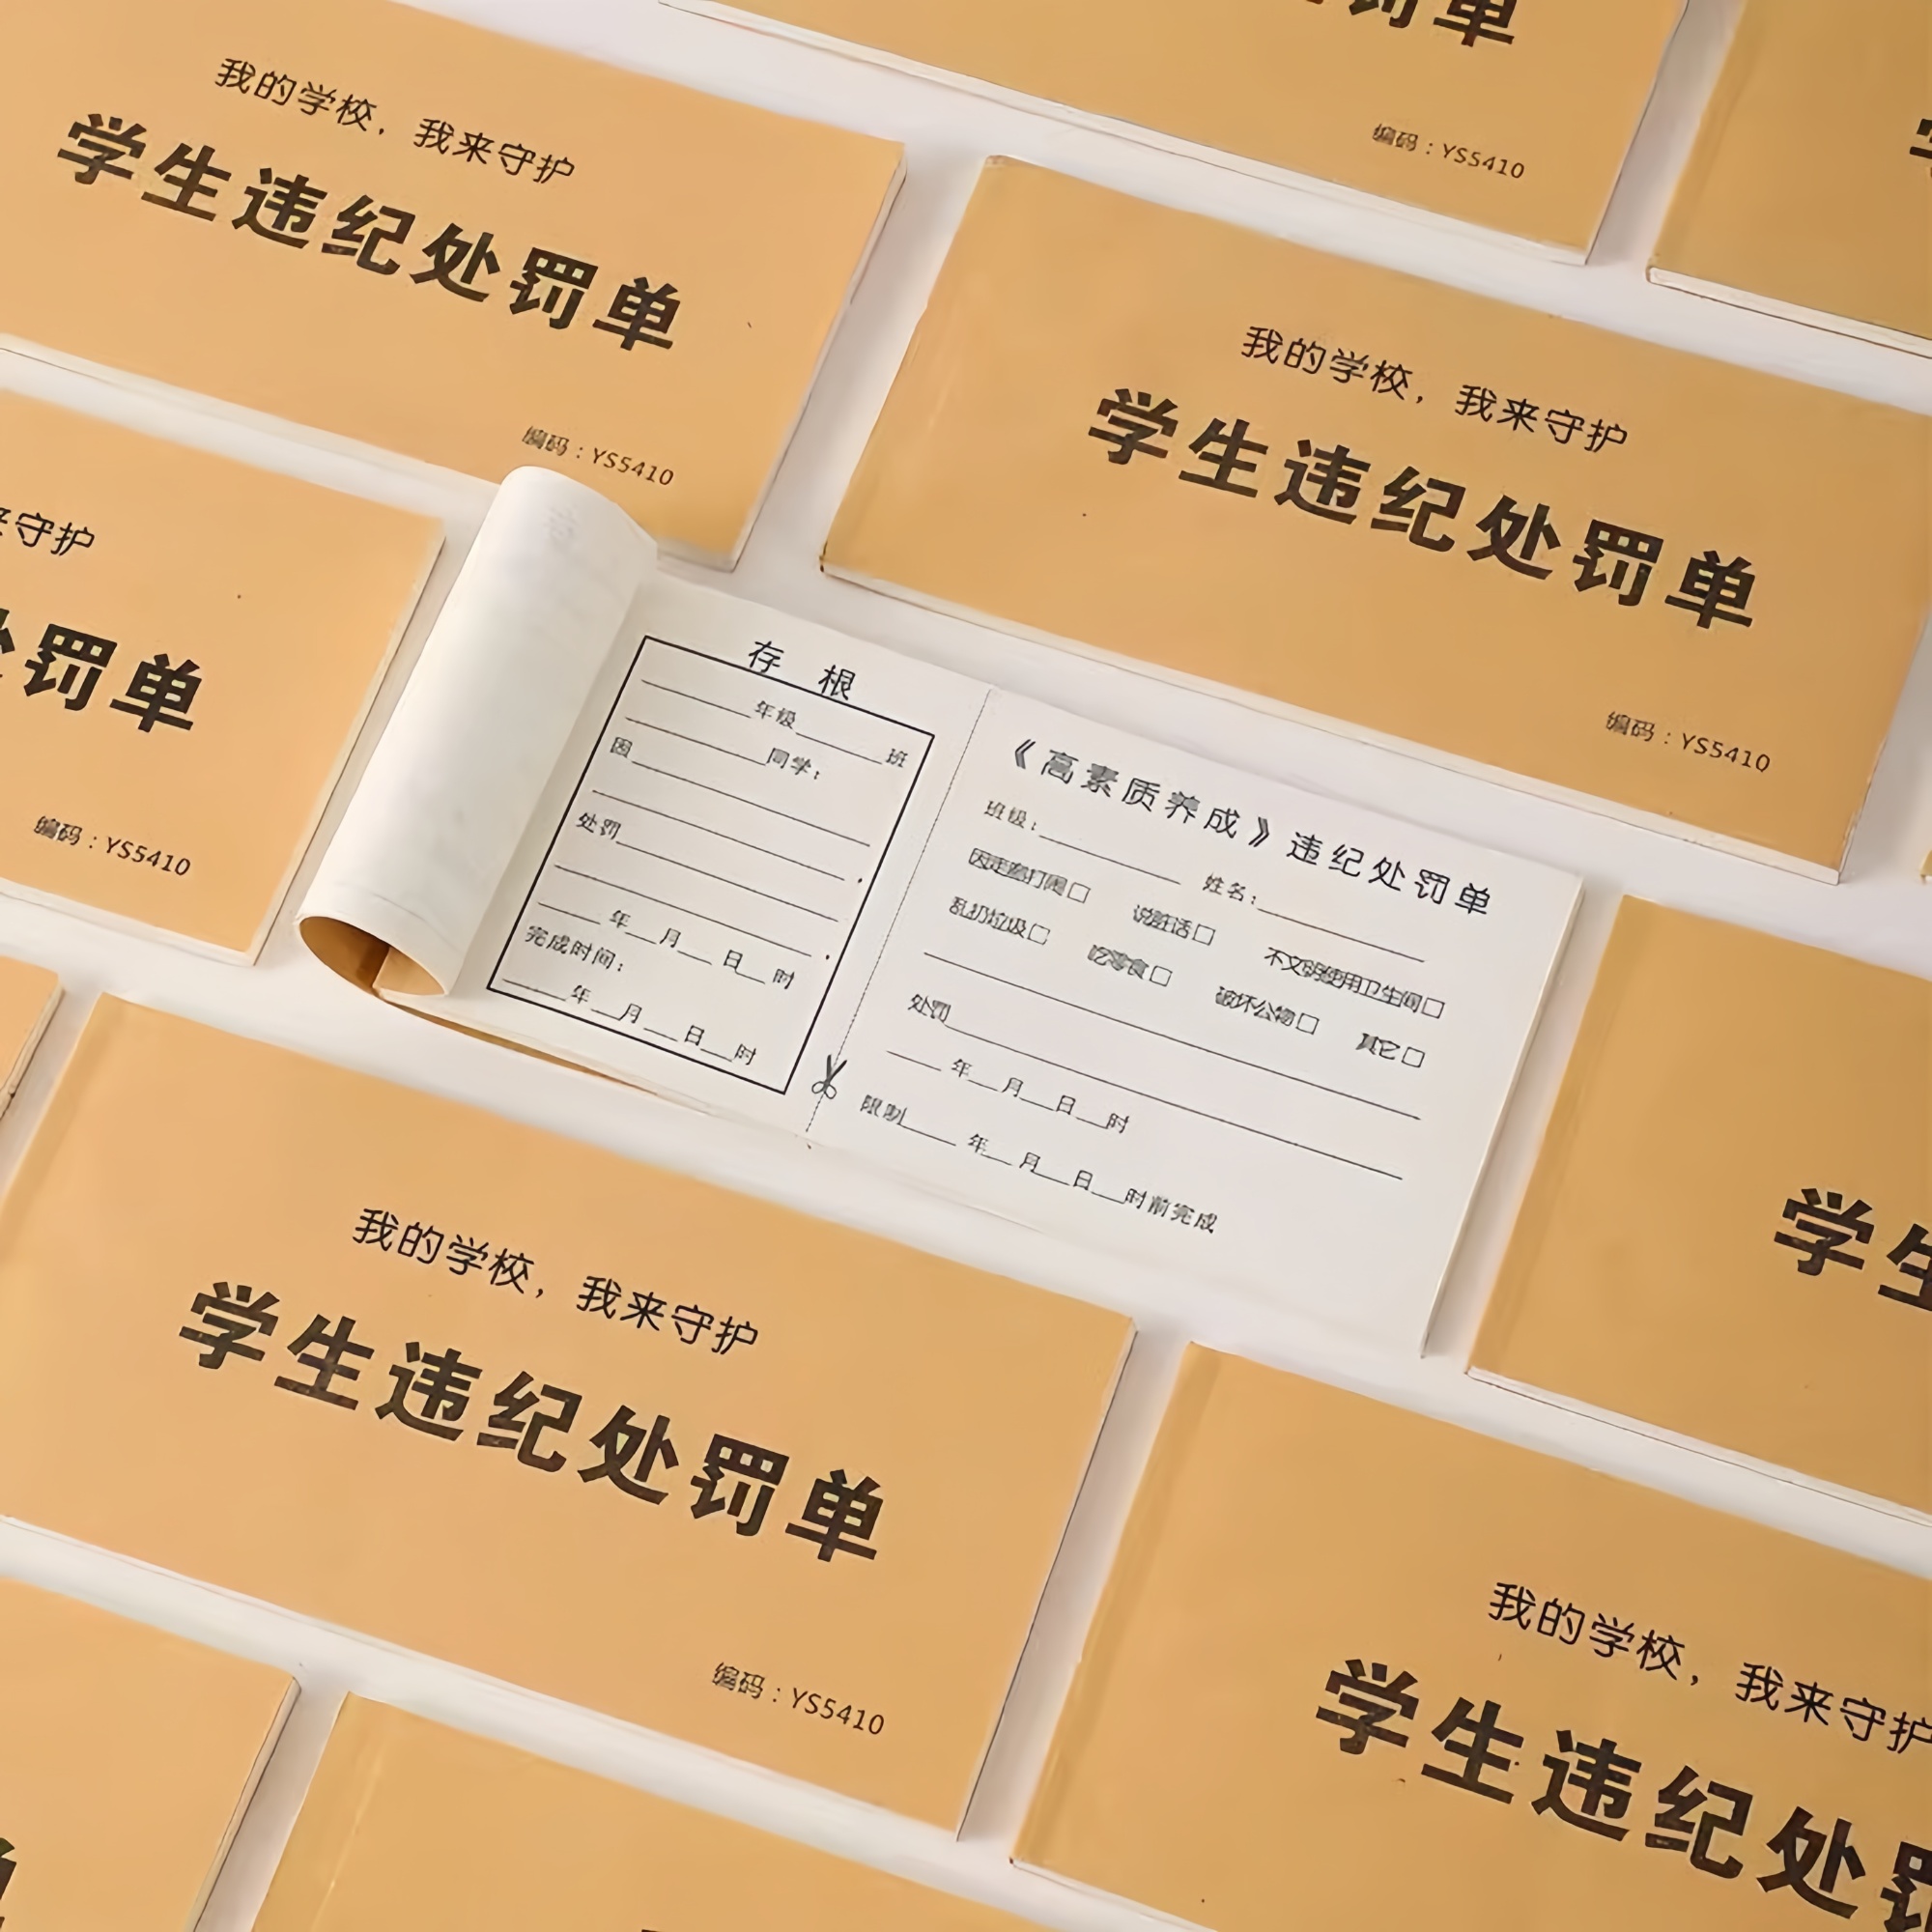 罚单
编码：YS5410
我的学校，我来守护
学生违纪处罚单
编码：YS5410
我的学校，我来守护
学生违纪处罚单
编码：YS5410
来守护
处罚单
编码：YS5410
存 根
____年级____班
____同学：
因____
处罚____，
____，
____年__月__日__时
完成时间：
____年__月__日__时
《高素质养成》违纪处罚单
班级：____ 姓名：____
说脏话□ 不文明使用卫生间□
乱扔垃圾□ 吃零食□ 破坏公物□ 其它□
处罚____
____年__月__日__时
限制____年__月__日__时前完成
学生
我的学校，我来守护
学生违纪处罚单
编码：YS5410
我的学校，我来守护
学生违纪处罚